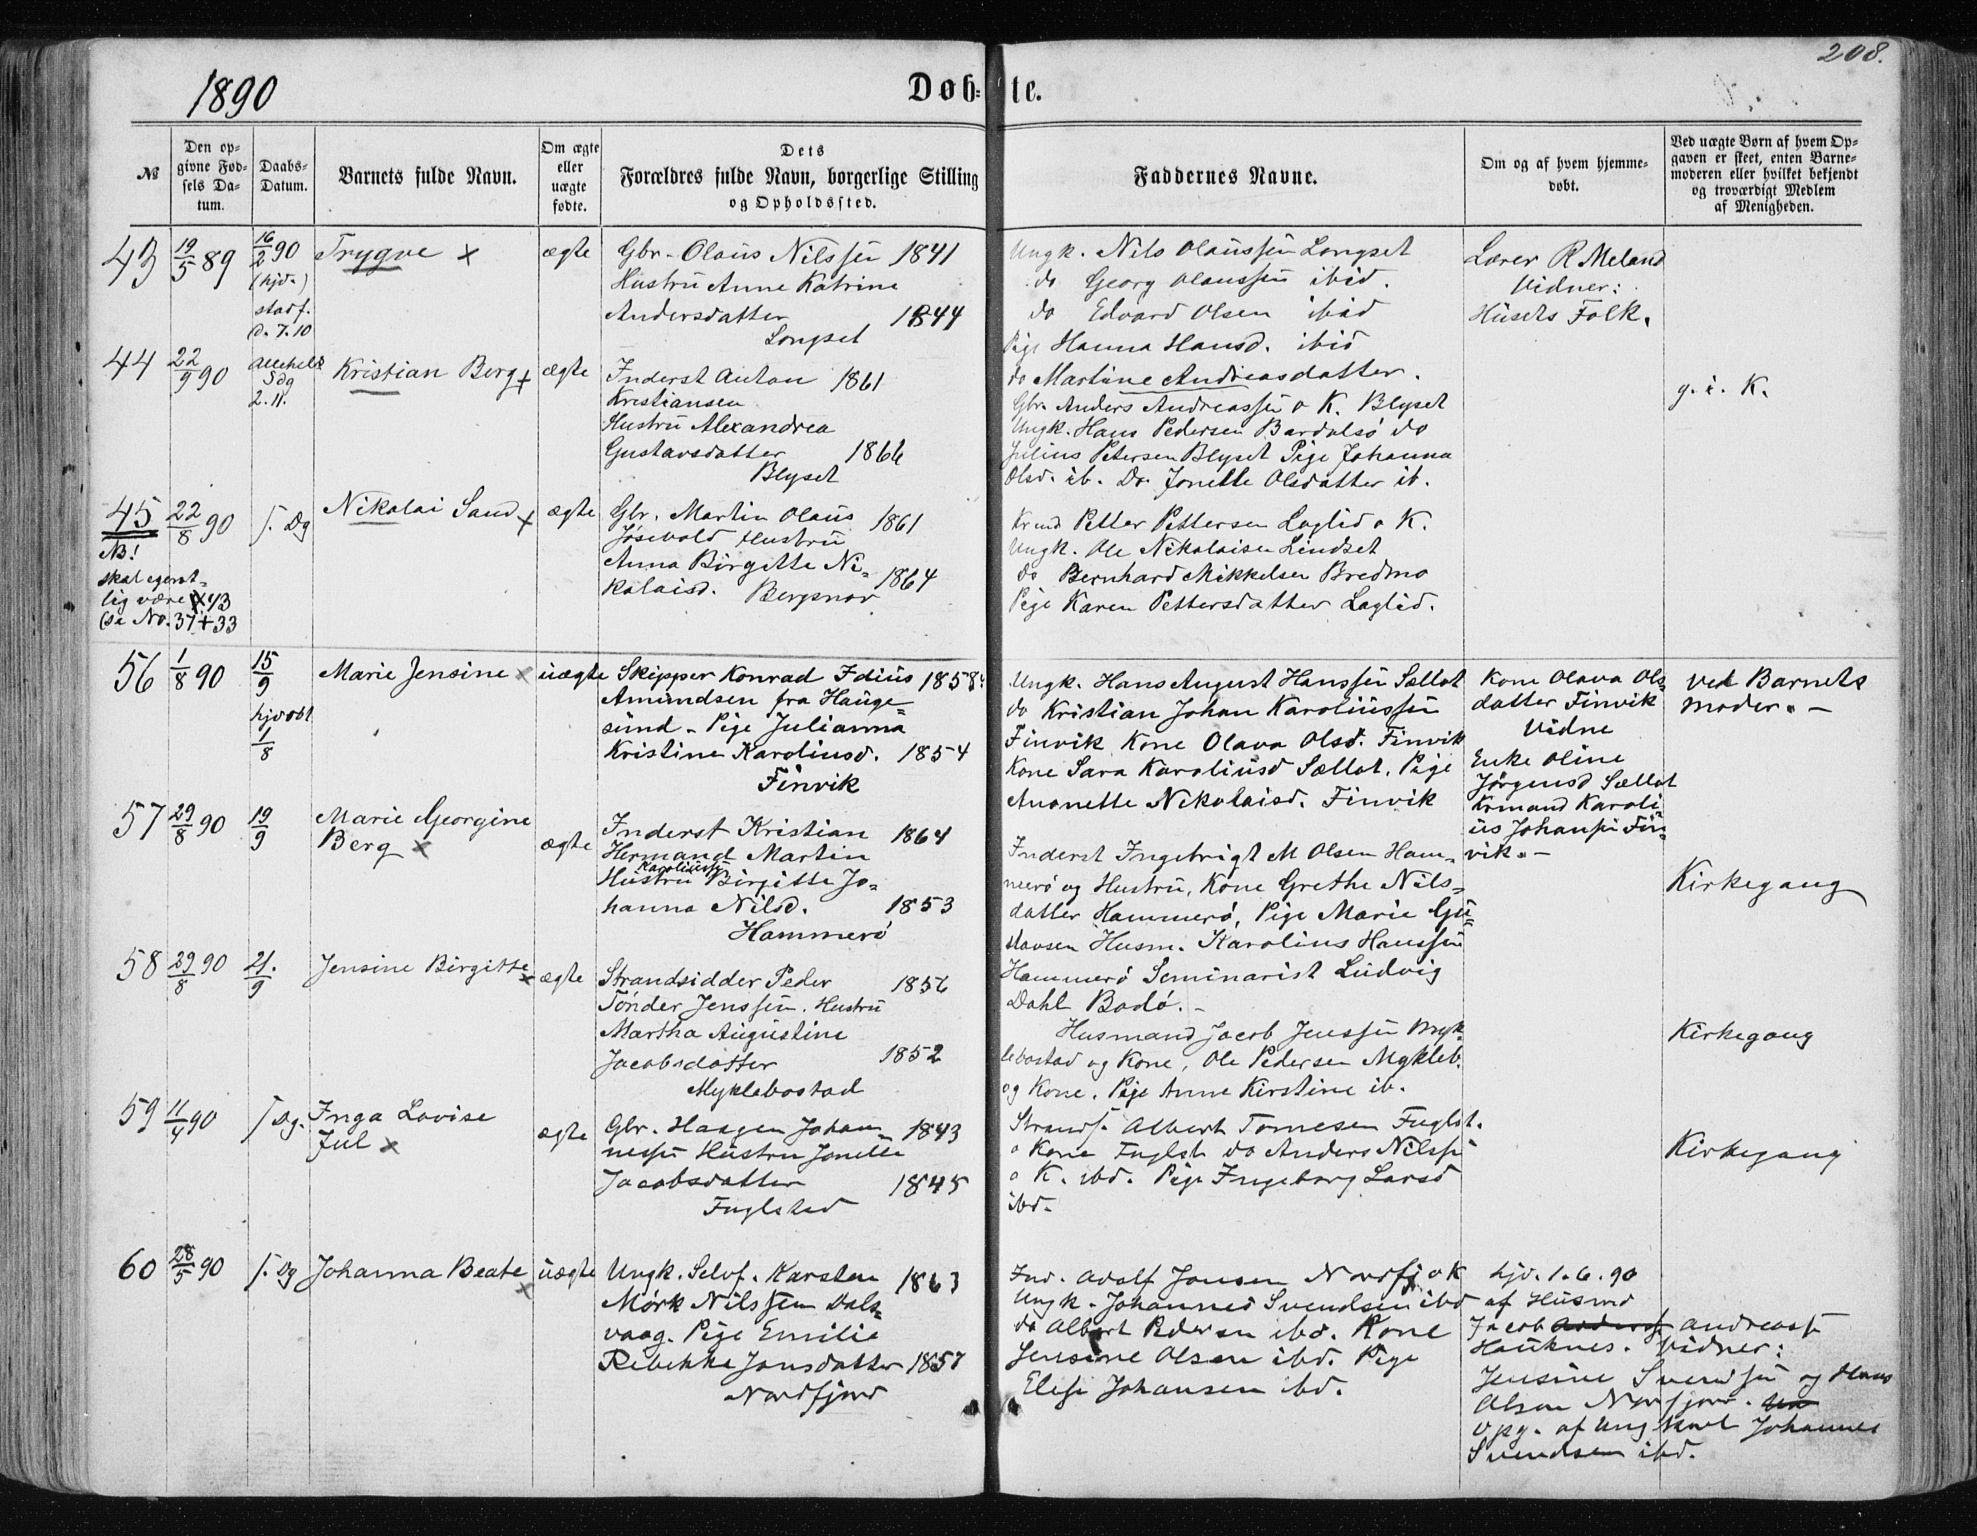 208.
1890
Døb-te.
№
Den op-
givne Fød-
sels Da-
tum.
Daabs-
Datum.
Barnets fulde Navn.
Om ægte
eller
uægte
fødte.
Dets
Forældres fulde Navn, borgerlige Stilling
og Opholdssted.
Faddernes Navne.
Om og af hvem hjemme-
døbt.
Ved uægte Børn af hvem Op-
gaven er skeet, enten Barne-
moderen eller hvilket bekjendt
og troværdigt Medlem
af Menigheden.
43
19/5 89
16/2 90
(hjd.)
stadf.
d. 7.10
Trygve x
ægte
Gbr. Olaus Nilssen 1841
Hustru Anne Katrine
Andersdatter 1844
Longset
Ungk. Nils Olaussen Longset
do Georg Olaussen ibid.
do Edvard Olsen ibid
Pige Hanna Hansd. ibid
do Martine Andreasdatter.
Lærer R Meland
Vidner:
Husets Folk.
44
22/9 90
Allehel
Sdg
2.11.
Kristian Berg +
ægte
Inderst Anton 1861
Kristiansen
Hustru Alexandrea
Gustavsdatter 1866
Blyset
Gbr. Anders Andreassen o K. Blyset
Ungk. Hans Pedersen Bardalsø do
Julius Petersen Blyset Pige Johanna
Olsd. ib. Do. Jonette Olsdatter ib.
g. i. K.
45
NB!
skal egent-
lig være 43
(se No. 37+33
22/8 90
s. Dg
Nikolai Sand x
ægte
Gbr. Martin Olaus 1861
Jøsevold Hustru
Anna Birgitte Ni-
kolaisd. 1864
Bergsnov
Krmd Petter Pettersen Laglid o K.
Ungk. Ole Nikolaisen Lindset
do Bernhard Mikkelsen Bredmo
Pige Karen Pettersdatter Laglid.
56
1/8 90
15/9
hjdøbt
1/8
Marie Jensine x
uægte
Skipper Konrad Idius 1858
Amundsen fra Hauge-
sund - Pige Julianna
Kristine Karoliusd. 1854
Finvik
Ungk. Hans August Hanssen Sællot
do Kristian Johan Karoliussen
Finvik Kone Olava Olsd. Finvik
Kone Sara Karoliusd Sællot. Pige
Anonette Nikolaisd. Finvik
Kone Olava Ols-
datter Finvik
Vidne
Enke Oline
Jørgensd Sællot
Krmand Karoli-
us Johansen Fin-
vik. -
ved Barnets
Moder. -
57
29/8 90
19/9
Marie Georgine
Berg x
ægte
Inderst Kristian 1864
Hermand Martin
Karoliussen
Hustru Birgitte Jo-
hanna Nilsd. 1853
Hammerø
Inderst Ingebrigt M Olsen Ham-
merø og Hustru, Kone Grethe Nils-
datter Hammerø, Pige Marie Gu-
stavsen Husm. Karolius Hanssen
Hammerø Seminarist Ludvig
Dahl Bodø. -
Kirkegang
58
29/8 90
21./9
Jensine Birgitte x
ægte
Strandsidder Peder 1856
Tønder Jenssen. Hustru
Martha Augustine
Jacobsdatter 1852
Myklebostad
Husmand Jacob Jenssen Myk-
lebostad og Kone, Ole Pedersen Mykleb.
og Kone. Pige Anne Kirstine ib.
Kirkegang
59
11/4 90
s Dg.
Inga Lovise
Jul x
ægte
Gbr. Haagen Johan- 1843
nessen Hustru Jonette
Jacobsdatter 1845
Fuglstad
Strands. Albert Tomesen Fuglst.
o Kone Fuglst do Anders Nilsse
o K. ibd. Pige Ingeborg Larsd
ibd.
Kirkegang
60
28/5 90
s. Dg
Johanna Beate x
uægte
Ungk. Selvf. Karsten 1863
Mørk Nilssen Dals-
vaag. Pige Emilie
Rebekka Jonsdatter 1857
Nordfjord
Ind. Adolf Jonsen Nordfj o K
Ungk. Johannes Svendsen ibd
do Albert Pedersen ibd. Kone
Jensine Olsen ibd. Pige
Elise Johansen ibd.
hjd. 1.6.90
af Husmd
Jacob Andreass
Hauknes. Vidner:
Jensine Svendsen og Hans
Olsen Nordfjord.
Opg. af Ungkarl Johannes
Svendsen ibd.